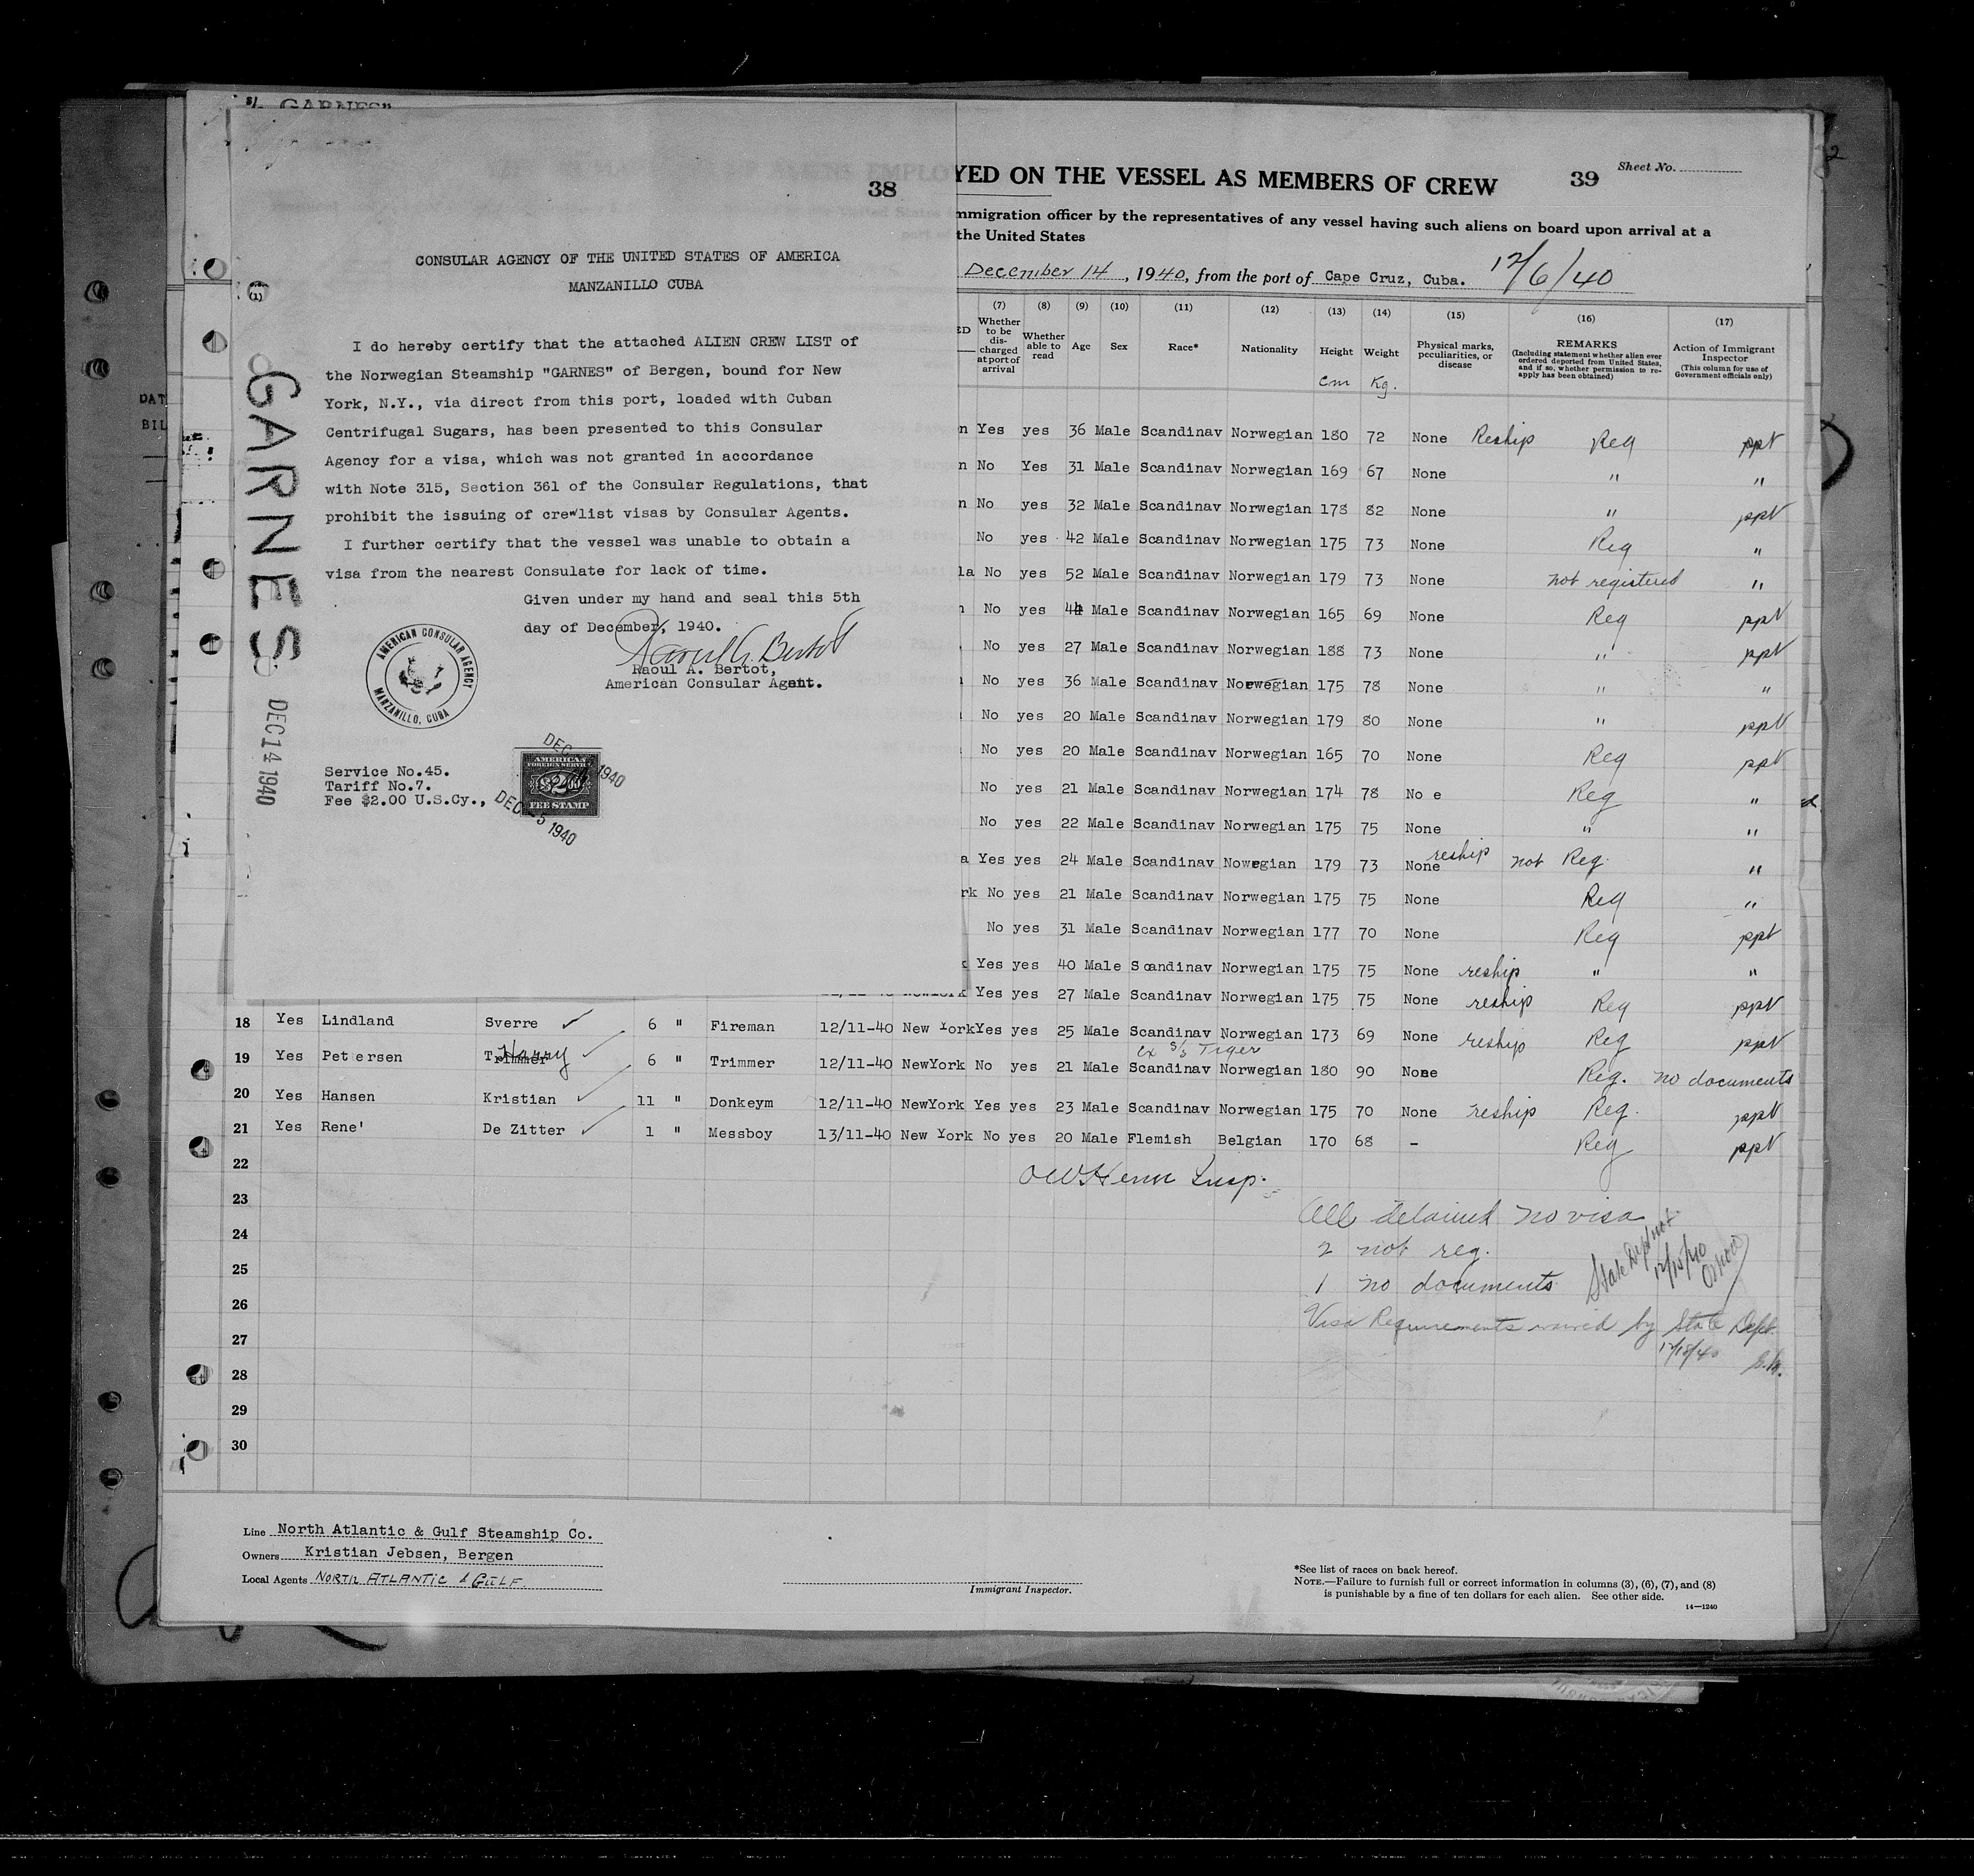 S/ GARNES"
38
CONSULAR AGENCY OF THE UNITED STATES OF AMERICA
MANZANILLO CUBA
I do hereby certify that the attached ALIEN CREW LIST of
the Norwegian Steamship "GARNES" of Bergen, bound for New
York, N.Y., via direct from this port, loaded with Cuban
Centrifugal Sugars, has been presented to this Consular
Agency for a visa, which was not granted in accordance
with Note 315, Section 361 of the Consular Regulations, that
prohibit the issuing of crewlist visas by Consular Agents.
I further certify that the vessel was unable to obtain a
visa from the nearest Consulate for lack of time.
Given under my hand and seal this 5th
day of December, 1940.
Raoul A. Bertot,
American Consular Agent.
AMERICAN CONSULAR AGENCY
MANZANILLO, CUBA
Service No.45.
Tariff No.7.
Fee $2.00 U.S.Cy.,
AMERICAN
FOREIGN SERVICE
$2.00
FEE STAMP
DEC 5 1940
DEC -5 1940
(1)
GARNES
DEC 14 1940
DAT
BIL
YED ON THE VESSEL AS MEMBERS OF CREW
39
Sheet No.
mmigration officer by the representatives of any vessel having such aliens on board upon arrival at a
the United States
December 14, 1940, from the port of Cape Cruz, Cuba. 12/6/40
(7) (8) (9) (10) (11) (12) (13) (14) (15) (16) (17)
Whether to be discharged at port of arrival
Whether able to read
Age
Sex
Race*
Nationality
Height
cm
Weight
Kg.
Physical marks, peculiarities, or disease
REMARKS
(Including statement whether alien ever ordered deported from United States, and if so, whether permission to re-apply has been obtained)
Action of Immigrant Inspector
(This column for use of Government officials only)
n Yes yes 36 Male Scandinav Norwegian 180 72 None Reship Reg ppt
n No Yes 31 Male Scandinav Norwegian 169 67 None " "
n No yes 32 Male Scandinav Norwegian 178 82 None " ppt
No yes 42 Male Scandinav Norwegian 175 73 None Reg "
la No yes 52 Male Scandinav Norwegian 179 73 None not registered "
No yes 44 Male Scandinav Norwegian 165 69 None Reg ppt
No yes 27 Male Scandinav Norwegian 188 73 None " ppt
No yes 36 Male Scandinav Norwegian 175 78 None " "
No yes 20 Male Scandinav Norwegian 179 80 None " ppt
No yes 20 Male Scandinav Norwegian 165 70 None Reg ppt
No yes 21 Male Scandinav Norwegian 174 78 No e Reg "
No yes 22 Male Scandinav Norwegian 175 75 None " "
a Yes yes 24 Male Scandinav Nowegian 179 73 None reship not Reg. "
rk No yes 21 Male Scandinav Norwegian 175 75 None Reg "
No yes 31 Male Scandinav Norwegian 177 70 None Reg ppt
Yes yes 40 Male Scandinav Norwegian 175 75 None reship " "
Yes yes 27 Male Scandinav Norwegian 175 75 None reship Reg ppt
18 Yes Lindland Sverre 6 " Fireman 12/11-40 New York Yes yes 25 Male Scandinav Norwegian 173 69 None reship Reg ppt
ex S/S Tiger
19 Yes Petersen Trimmer Harry 6 " Trimmer 12/11-40 NewYork No yes 21 Male Scandinav Norwegian 180 90 None Reg. no documents
20 Yes Hansen Kristian 11 " Donkeym 12/11-40 NewYork Yes yes 23 Male Scandinav Norwegian 175 70 None reship Reg. ppt
21 Yes Rene' De Zitter 1 " Messboy 13/11-40 New York No yes 20 Male Flemish Belgian 170 68 - Reg ppt
22
23
24
25
26
27
28
29
30
Insp.
All detained no visa
2 not reg.
1 no documents
Visa Requirements waived by State Dept.
12/18/40
Line North Atlantic & Gulf Steamship Co.
Owners Kristian Jebsen, Bergen
Local Agents NORTH ATLANTIC & GULF.
Immigrant Inspector.
*See list of races on back hereof.
NOTE.—Failure to furnish full or correct information in columns (3), (6), (7), and (8)
is punishable by a fine of ten dollars for each alien. See other side.
14—1240